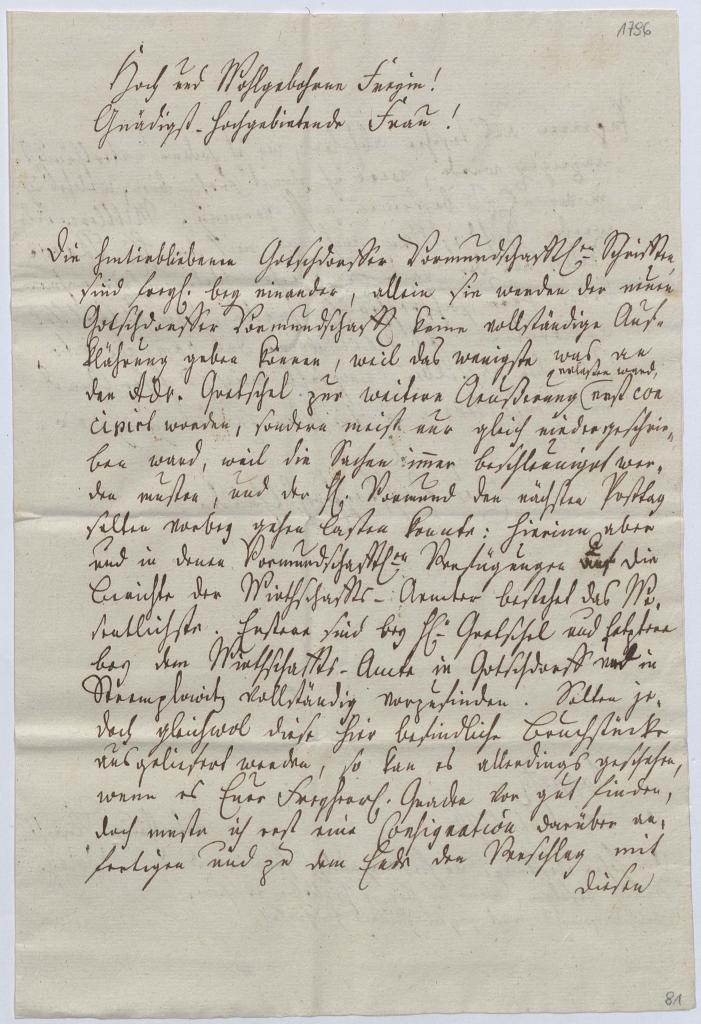 1796
Hoch und Wohlgebohrne Freyin!
Gnädigst-Hochgebietende Frau!
Die hinterbliebenen Gotschdorffer Vormundschafftl.en Schrifften
sind freyl. bey einander, allein sie werden der neuen
Gotschdorffer Vormundschafft keine vollständige Auf-
klährung geben können, weil das wenigste was an
den Adv. Gretschel zur weitern Aeußerung erlassen ward, erst con
cipirt worden, sondern meist nur gleich niedergeschrie-
ben ward, weil die Sachen immer beschleuniget wer-
den musten, und der H. Vormund den nächsten Posttag
selten vorbey gehen lassen konnte: hierinn aber
und in denen Vormundschafftl.en Verfügungen auf die
Berichte der Wirthschaffts-Aemter bestehet das We-
sentlichste. Erstere sind bey H. Gretschel und letztere
bey dem Wirthschaffts-Amte in Gotschdorff und in
Stremplowitz vollständig vorzufinden. Solten je-
doch gleichwol diese hier befindliche Bruchstücke
ausgeliefert werden, so kan es allerdings geschehen,
wenn es Euer Freyherrl. Gnaden vor gut finden,
doch müste ich erst eine Consignation darüber an-
fertigen und zu dem Ende den Verschlag mit
diesen
81